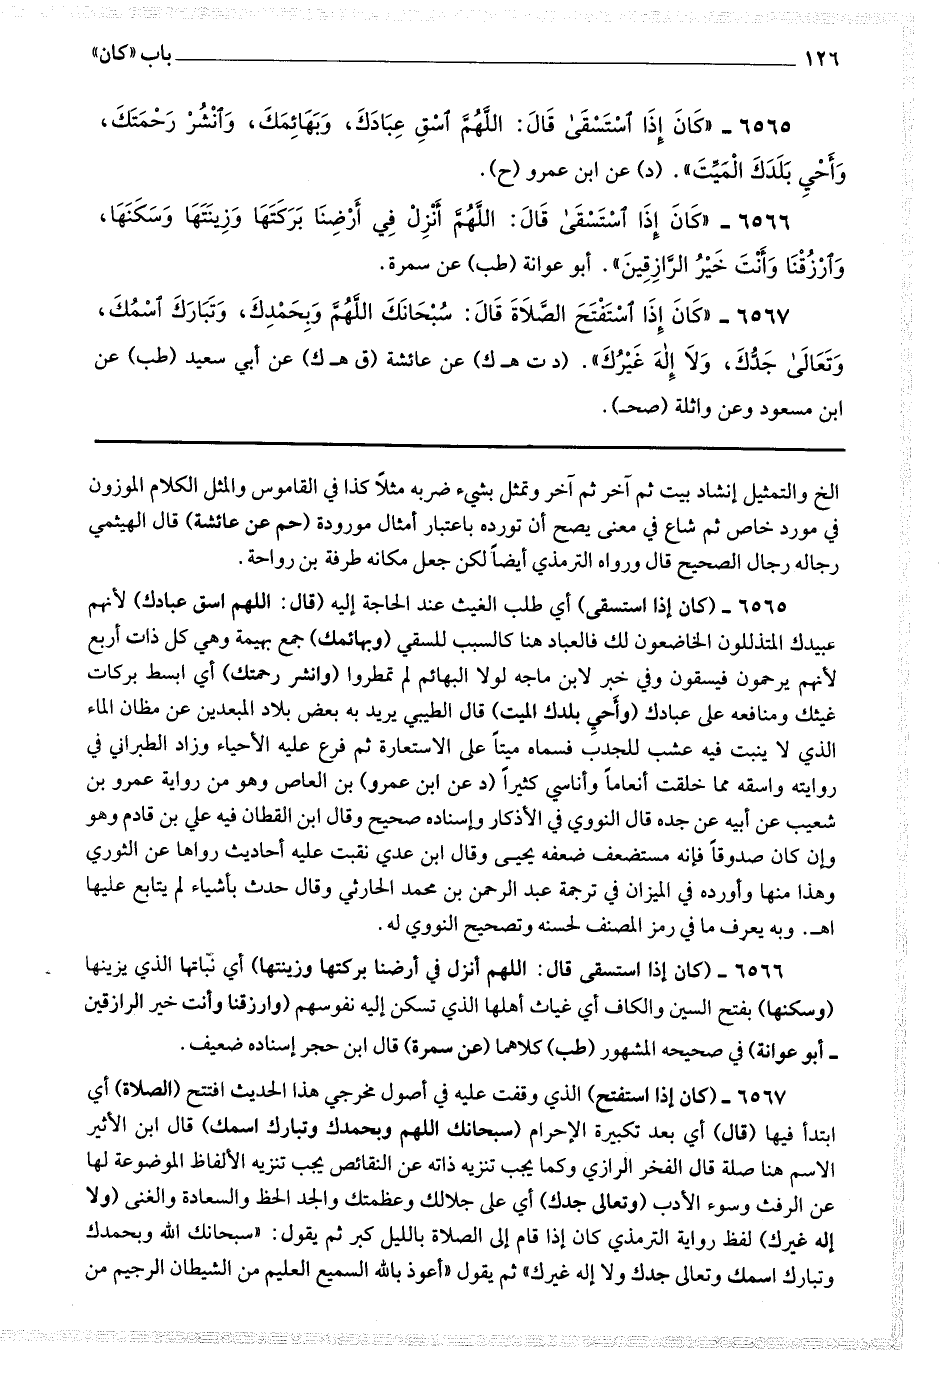 ١٢٦ باب «كان»
٦٥٦٥ ـ «كَانَ إِذَا ٱسْتَسْقَىٰ قَالَ: اللَّهُمَّ ٱسْقِ عِبَادَكَ، وَبَهَائِمَكَ، وَٱنْشُرْ رَحْمَتَكَ،
وَأَحْيِ بَلَدَكَ الْمَيِّتَ». (د) عن ابن عمرو (ح).
٦٥٦٦ ـ «كَانَ إِذَا ٱسْتَسْقَىٰ قَالَ: اللَّهُمَّ أَنْزِلْ فِي أَرْضِنَا بَرَكَتَهَا وَزِينَتَهَا وَسَكَنَهَا،
وَٱرْزُقْنَا وَأَنْتَ خَيْرُ الرَّازِقِينَ». أبو عوانة (طب) عن سمرة.
٦٥٦٧ ـ «كَانَ إِذَا ٱسْتَفْتَحَ الصَّلَاةَ قَالَ: سُبْحَانَكَ اللَّهُمَّ وَبِحَمْدِكَ، وَتَبَارَكَ ٱسْمُكَ،
وَتَعَالَىٰ جَدُّكَ، وَلَا إِلٰهَ غَيْرُكَ». (د ت هـ ك) عن عائشة (ق هـ ك) عن أبي سعيد (طب) عن
ابن مسعود وعن واثلة (صحـ).
الخ والتمثيل إنشاد بيت ثم آخر ثم آخر وتمثل بشيء ضربه مثلاً كذا في القاموس والمثل الكلام الموزون
في مورد خاص ثم شاع في معنى يصح أن تورده باعتبار أمثال مورودة (حم عن عائشة) قال الهيثمي
رجاله رجال الصحيح قال ورواه الترمذي أيضاً لكن جعل مكانه طرفة بن رواحة.
٦٥٦٥ ـ (كان إذا استسقى) أي طلب الغيث عند الحاجة إليه (قال: اللهم اسق عبادك) لأنهم
عبيدك المتذللون الخاضعون لك فالعباد هنا كالسبب للسقي (وبهائمك) جمع بهيمة وهي كل ذات أربع
لأنهم يرحمون فيسقون وفي خبر لابن ماجه لولا البهائم لم تمطروا (وانشر رحمتك) أي ابسط بركات
غيثك ومنافعه على عبادك (وأحيِ بلدك الميت) قال الطيبي يريد به بعض بلاد المبعدين عن مظان الماء
الذي لا ينبت فيه عشب للجدب فسماه ميتاً على الاستعارة ثم فرع عليه الأحياء وزاد الطبراني في
روايته واسقه مما خلقت أنعاماً وأناسي كثيراً (د عن ابن عمرو) بن العاص وهو من رواية عمرو بن
شعيب عن أبيه عن جده قال النووي في الأذكار وإسناده صحيح وقال ابن القطان فيه علي بن قادم وهو
وإن كان صدوقاً فإنه مستضعف ضعفه يحيـى وقال ابن عدي نقبت عليه أحاديث رواها عن الثوري
وهذا منها وأورده في الميزان في ترجمة عبد الرحمن بن محمد الحارثي وقال حدث بأشياء لم يتابع عليها
اهـ. وبه يعرف ما في رمز المصنف لحسنه وتصحيح النووي له.
٦٥٦٦ ـ (كان إذا استسقى قال: اللهم أنزل في أرضنا بركتها وزينتها) أي نباتها الذي يزينها
(وسكنها) بفتح السين والكاف أي غياث أهلها الذي تسكن إليه نفوسهم (وارزقنا وأنت خير الرازقين
ـ أبو عوانة) في صحيحه المشهور (طب) كلاهما (عن سمرة) قال ابن حجر إسناده ضعيف.
٦٥٦٧ ـ (كان إذا استفتح) الذي وقفت عليه في أصول مخرجي هذا الحديث افتتح (الصلاة) أي
ابتدأ فيها (قال) أي بعد تكبيرة الإحرام (سبحانك اللهم وبحمدك وتبارك اسمك) قال ابن الأثير
الاسم هنا صلة قال الفخر الرازي وكما يجب تنزيه ذاته عن النقائص يجب تنزيه الألفاظ الموضوعة لها
عن الرفث وسوء الأدب (وتعالى جدك) أي على جلالك وعظمتك والجد الحظ والسعادة والغنى (ولا
إله غيرك) لفظ رواية الترمذي كان إذا قام إلى الصلاة بالليل كبر ثم يقول: «سبحانك الله وبحمدك
وتبارك اسمك وتعالى جدك ولا إله غيرك» ثم يقول «أعوذ بالله السميع العليم من الشيطان الرجيم من